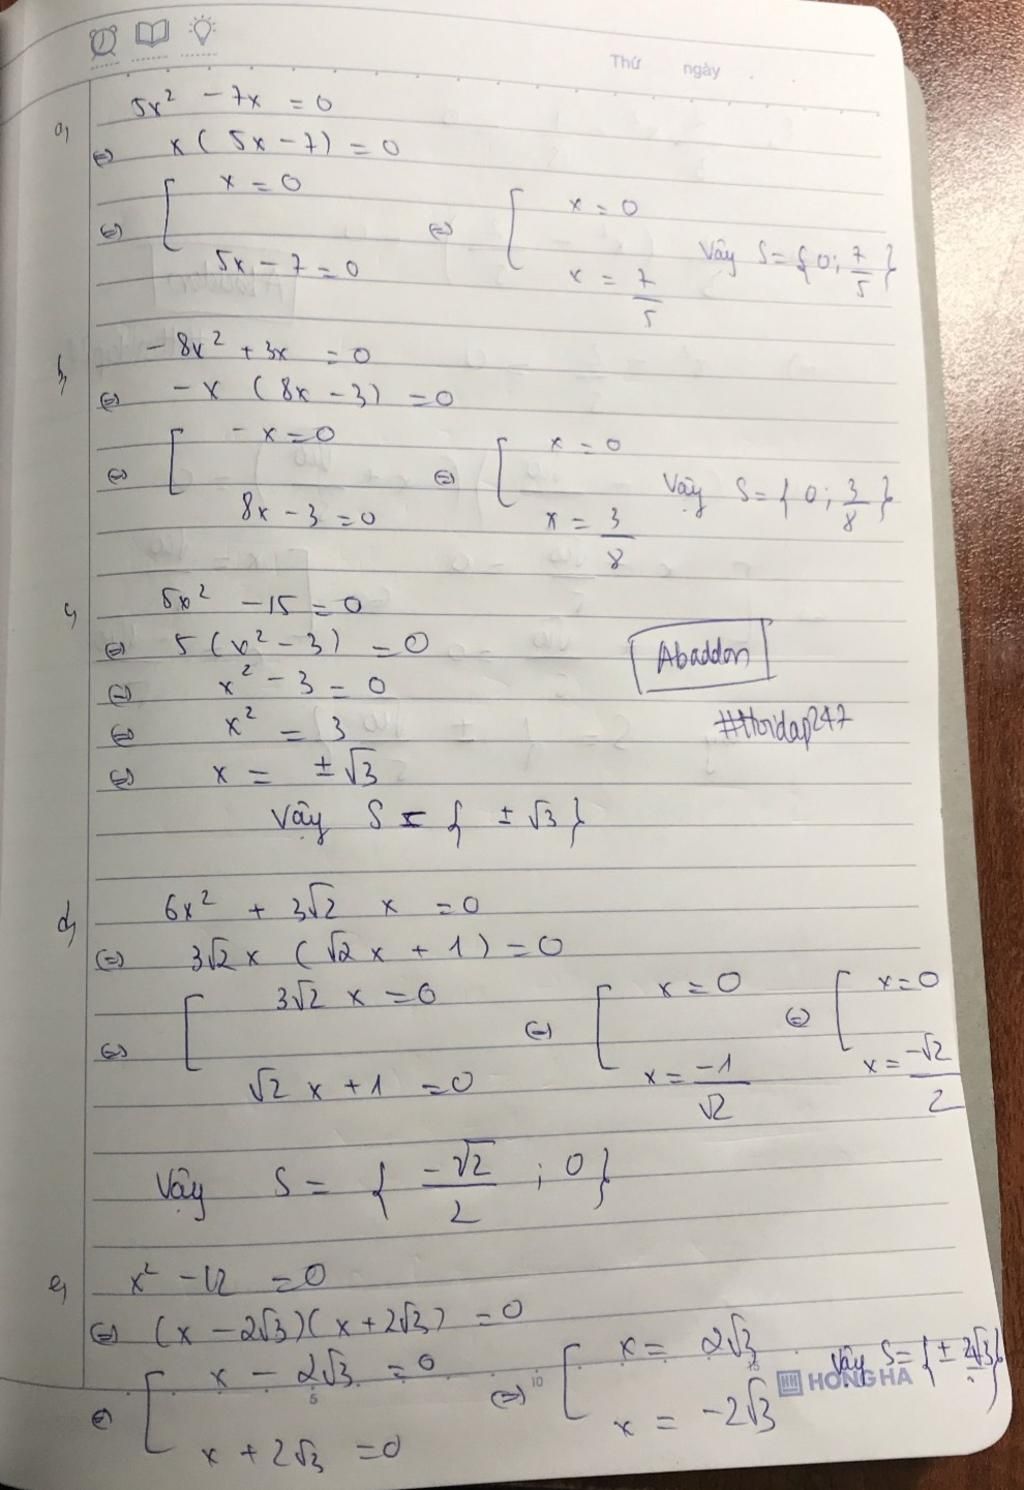 Thứ ngày
a, 5x² - 7x = 0
⇔ x ( 5x - 7) = 0
⇔ [ x = 0 ⇔ [ x = 0
5x - 7 = 0 x = 7/5 Vậy S = { 0 ; 7/5 }
b, - 8x² + 3x = 0
⇔ - x ( 8x - 3) = 0
⇔ [ - x = 0 ⇔ [ x = 0
8x - 3 = 0 x = 3/8 Vậy S = { 0 ; 3/8 }
c, 5x² - 15 = 0
⇔ 5 ( x² - 3 ) = 0
⇔ x² - 3 = 0
⇔ x² = 3
⇔ x = ± √3
Vậy S = { ± √3 }
Abaddon
#Hoidap247
d, 6x² + 3√2 x = 0
⇔ 3√2 x ( √2 x + 1 ) = 0
⇔ [ 3√2 x = 0 ⇔ [ x = 0 ⇔ [ x = 0
√2 x + 1 = 0 x = -1/√2 x = -√2/2
Vậy S = { -√2/2 ; 0 }
e, x² - 12 = 0
⇔ (x - 2√3)(x + 2√3) = 0
⇔ [ x - 2√3 = 0 ⇔ [ x = 2√3 Vậy S = { ± 2√3 }
x + 2√3 = 0 x = -2√3
5 10 15
HONG HA